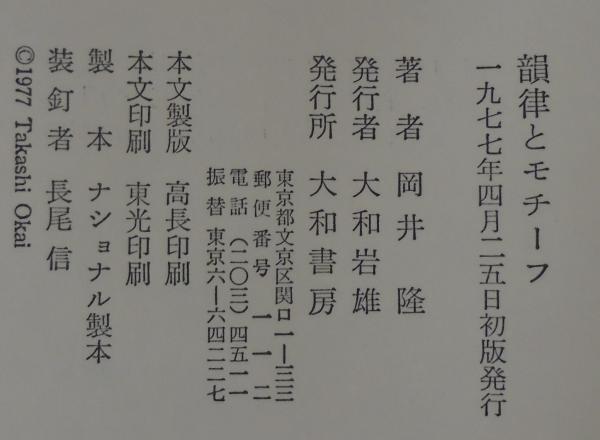 韻律とモチーフ
一九七七年四月二五日初版発行
著者 岡井 隆
発行者 大和岩雄
発行所 大和書房
東京都文京区関口一—三三
郵便番号 一一二
電話(二〇三)四五一一
振替 東京六—六四二二七
本文製版 高長印刷
本文印刷 東光印刷
製本 ナショナル製本
装釘者 長尾 信
©1977 Takashi Okai